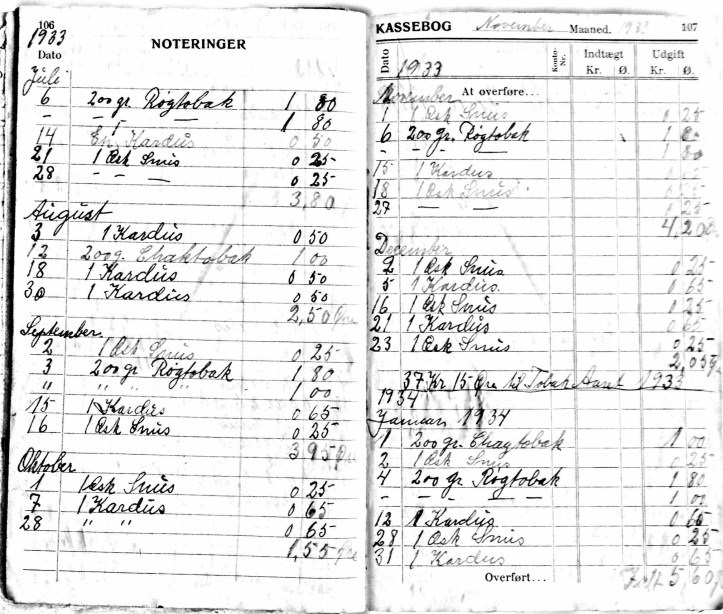 106
1933
NOTERINGER
Dato
Juli
6 200 gr. Røgtobak 1 80
— — — 1 80
14 En Kardus 0 50
21 1 Æsk Snus 0 25
28 — — — 0 25
3,80
August
3 1 Kardus 0 50
12 200 g. Chaktobak 1 00
18 1 Kardus 0 50
30 1 Kardus 0 50
2,50 Øre
September
2 1 Æsk Snus 0 25
3 200 gr Røgtobak 1 80
" " " " 1 00
15 1 Kardus 0 65
16 1 Æsk Snus 0 25
3 95 Øre
Oktober
1 1 Æsk Snus 0 25
7 1 Kardus 0 65
28 " " 0 65
1,55 Øre
KASSEBOG November Maaned. 1933 107
Dato 1933 Konto-Nr. Indtægt Udgift
Kr. Ø. Kr. Ø.
November At overføre...
1 1 Æsk Snus 0 25
6 200 gr. Røgtobak 1 80
— — — 1 80
15 1 Kardus
18 1 Æsk Snus
27 — — 25
4,20
December
2 1 Æsk Snus 0 25
5 1 Kardus. 0 65
16 1 Æsk Snus 0 25
21 1 Kardus 0 65
23 1 Æsk Snus 0 25
2,05
37 Kr 15 Øre til Tobak Aaret 1933
1934
Januar 1934
1 200 gr. Chagtobak 1 00
2 1 Æsk Snus 0 25
4 200 gr Røgtobak 1 80
— — — — 1 00
12 1 Kardus 0 65
28 1 Æsk Snus 0 25
31 1 Kardus 0 65
Overført... 5 60